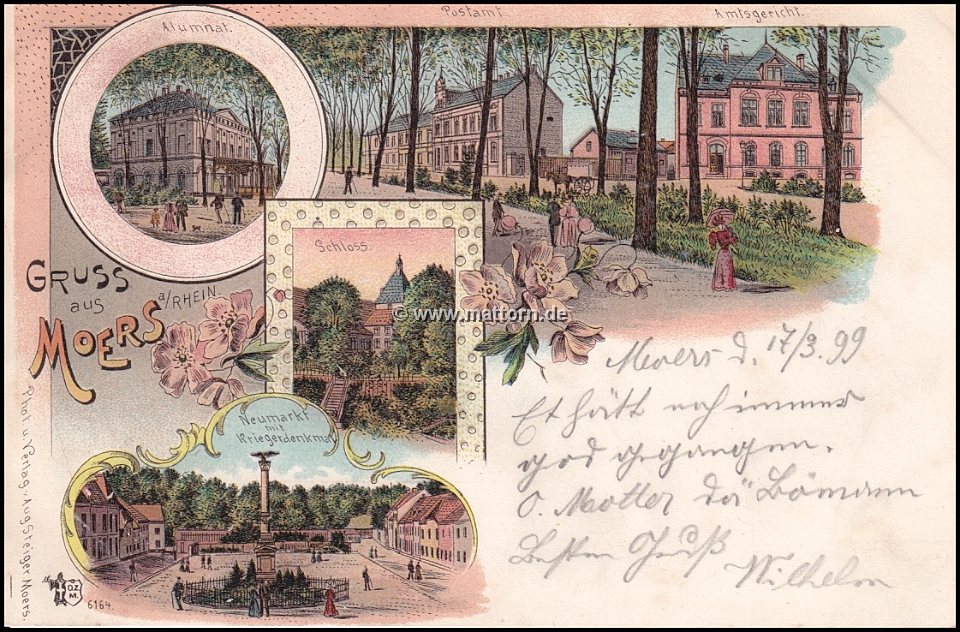 Alumnat.
Postamt.
Amtsgericht.
Schloss.
GRUSS
aus
MOERS
a/RHEIN.
© www.mattorn.de
Neumarkt
mit
Kriegerdenkmal
Moers d. 17/3. 99
Et hätt noch immer
god gegangen.
O. Motter dä Bömann
Besten Gruß
Wilhelm
Phot. u. Verlag v. Aug. Steiger Moers.
O.Z.
M.
6164.